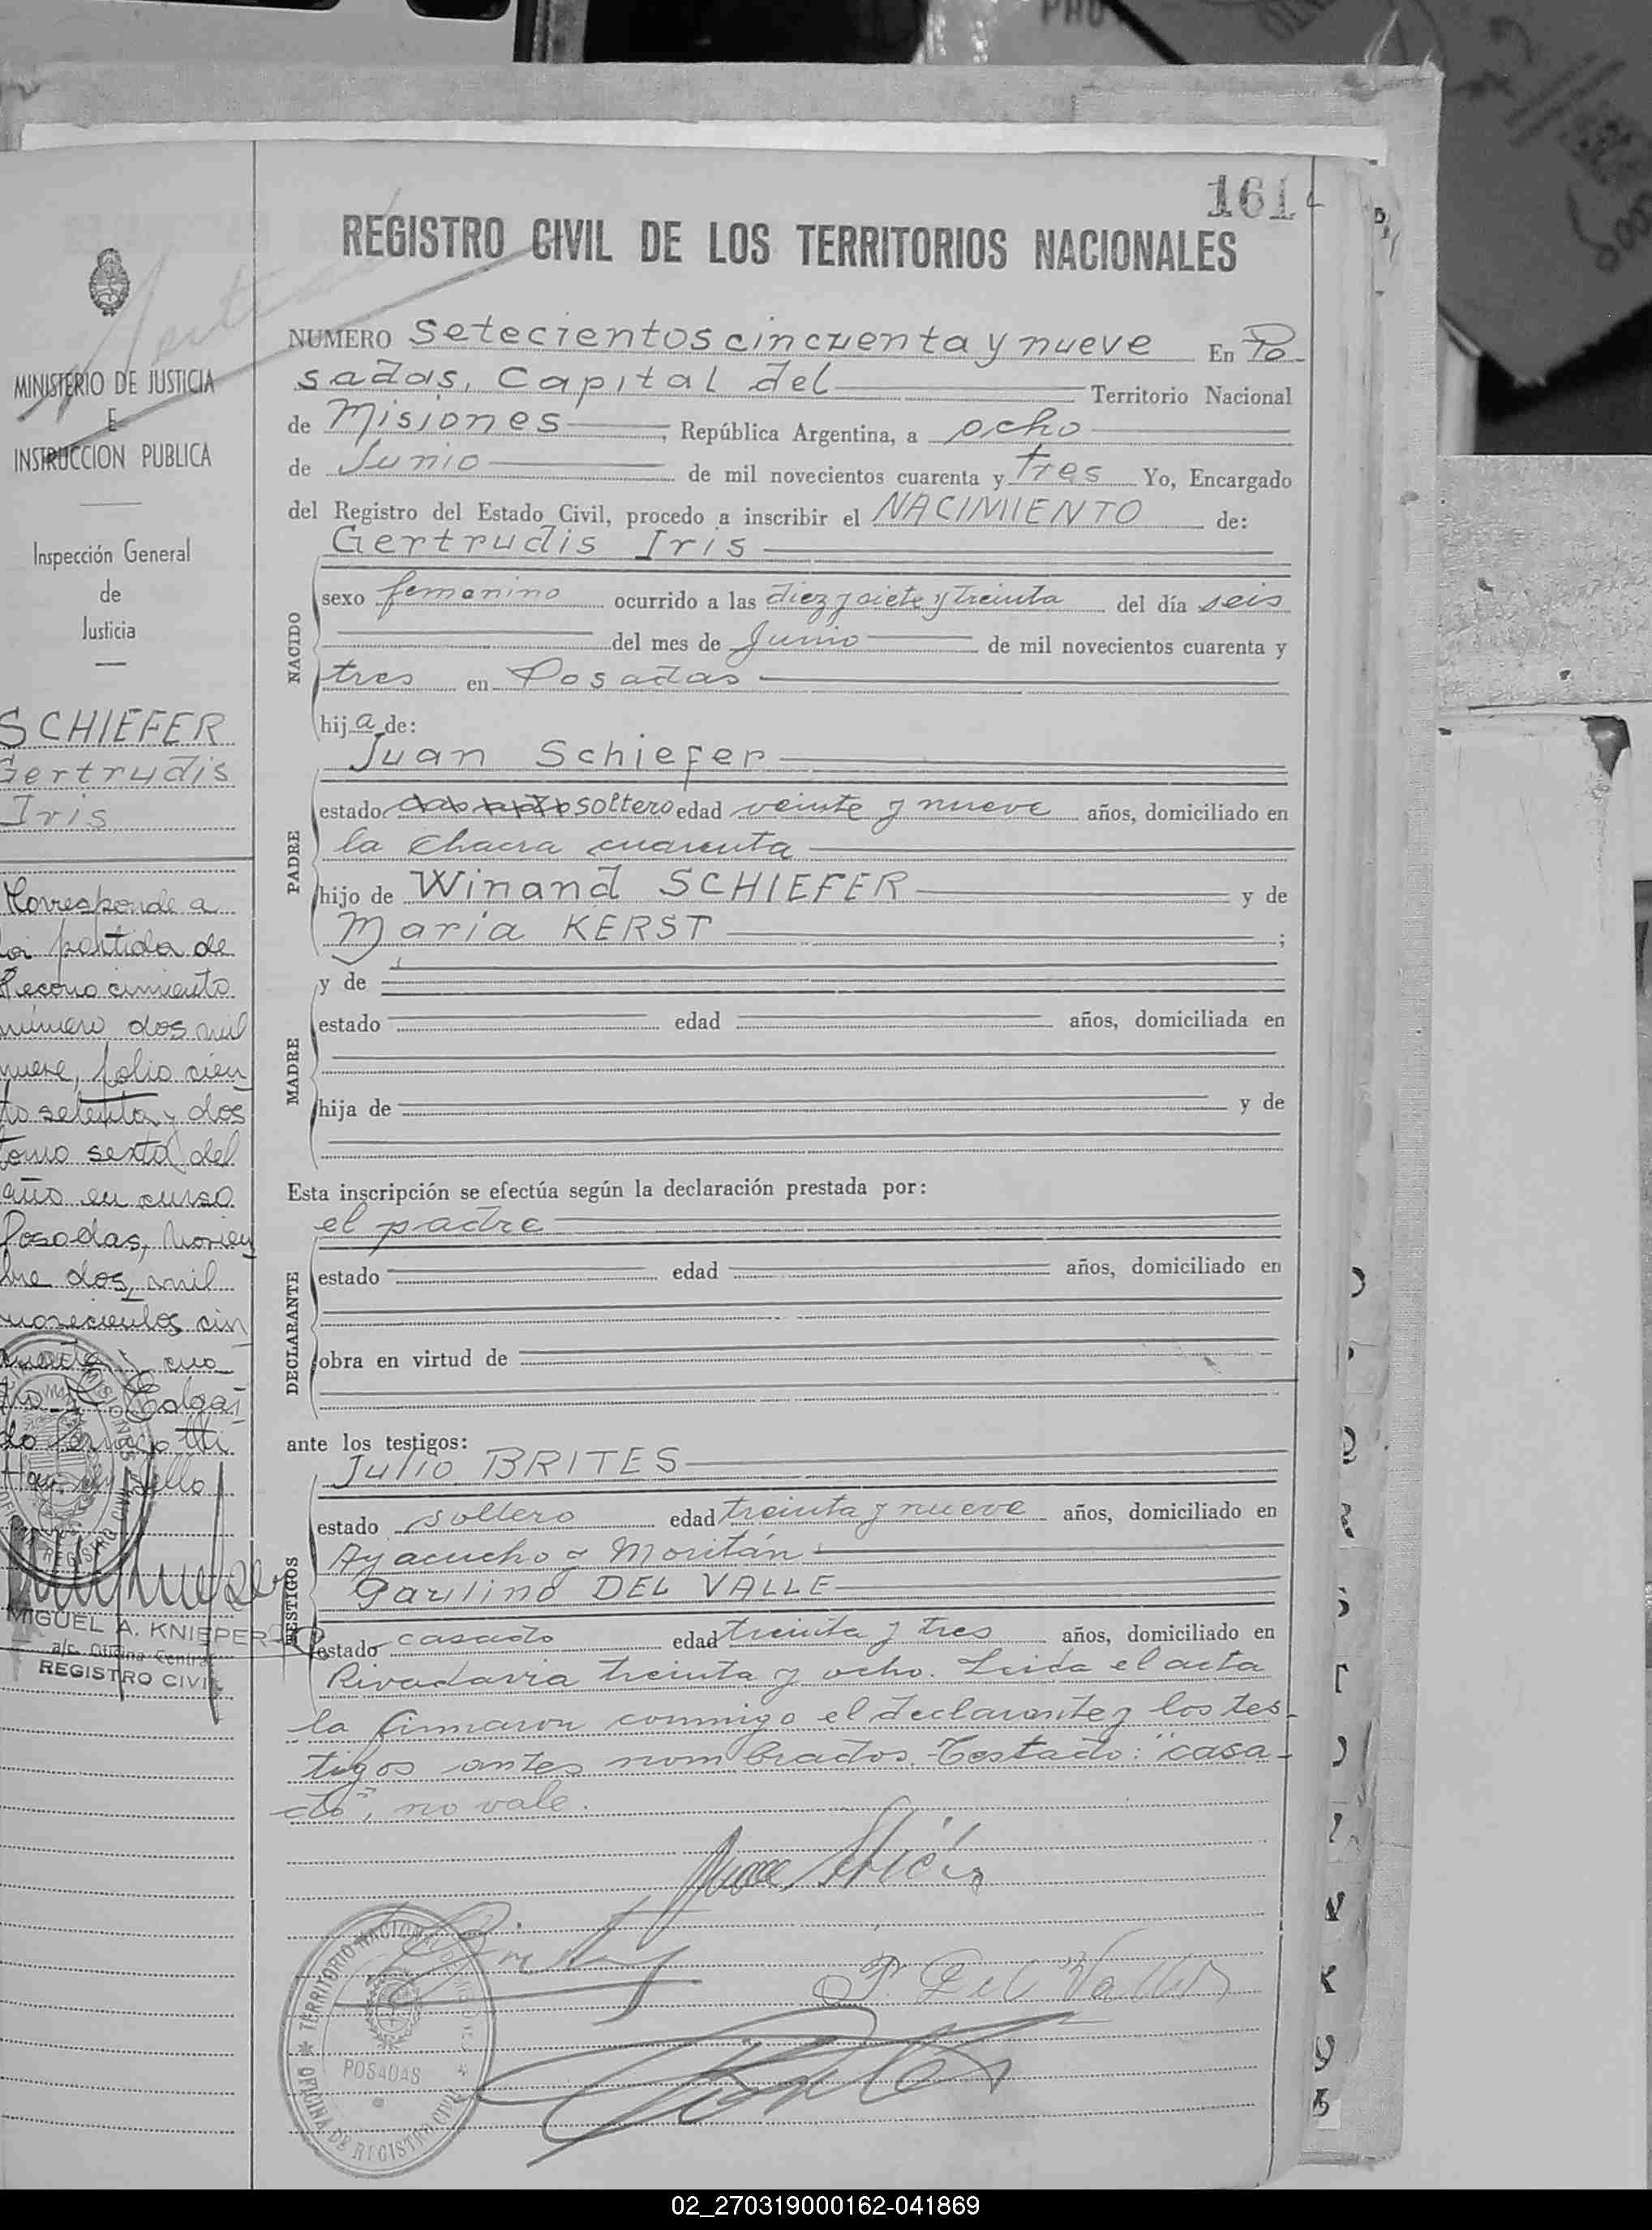 161
REGISTRO CIVIL DE LOS TERRITORIOS NACIONALES
MINISTERIO DE JUSTICIA
E
INSTRUCCION PUBLICA
Inspección General
de
Justicia
SCHIEFER
Gertrudis
Iris
Corresponde a
la partida de
Reconocimiento
número dos mil
nueve, folio cien
to setenta y dos
tomo sexto del
año en curso
Posadas, Noviem
bre dos, mil
novecientos cin
cuenta y cua
tro
sello
MIGUEL A. KNIEPER
a/c. Oficina Central
REGISTRO CIVIL
NUMERO Setecientos cincuenta y nueve En Po
sadas, Capital del Territorio Nacional
de Misiones, República Argentina, a ocho
de Junio de mil novecientos cuarenta y tres Yo, Encargado
del Registro del Estado Civil, procedo a inscribir el NACIMIENTO de:
Gertrudis Iris
NACIDO
sexo femenino ocurrido a las diez y siete y treinta del día seis
del mes de Junio de mil novecientos cuarenta y
tres en Posadas
hija de:
Juan Schiefer
PADRE
estado casado soltero edad veinte y nueve años, domiciliado en
la Chacra cuarenta
hijo de Winand SCHIEFER y de
Maria KERST ;
MADRE
y de
estado edad años, domiciliada en
hija de y de
Esta inscripción se efectúa según la declaración prestada por:
el padre
DECLARANTE
estado edad años, domiciliado en
obra en virtud de
ante los testigos:
Julio BRITES
TESTIGOS
estado soltero edad treinta y nueve años, domiciliado en
Ayacucho y Moritán
Paulino DEL VALLE
estado casado edad treinta y tres años, domiciliado en
Rivadavia treinta y ocho. Leida el acta
la firmaron conmigo el declarante y los tes-
tigos antes nombrados. Testado: "casa-
do", no vale.
P. Del Valle
TERRITORIO NACIONAL DE MISIONES
POSADAS
OFICINA DE REGISTRO CIVIL
02_270319000162-041869